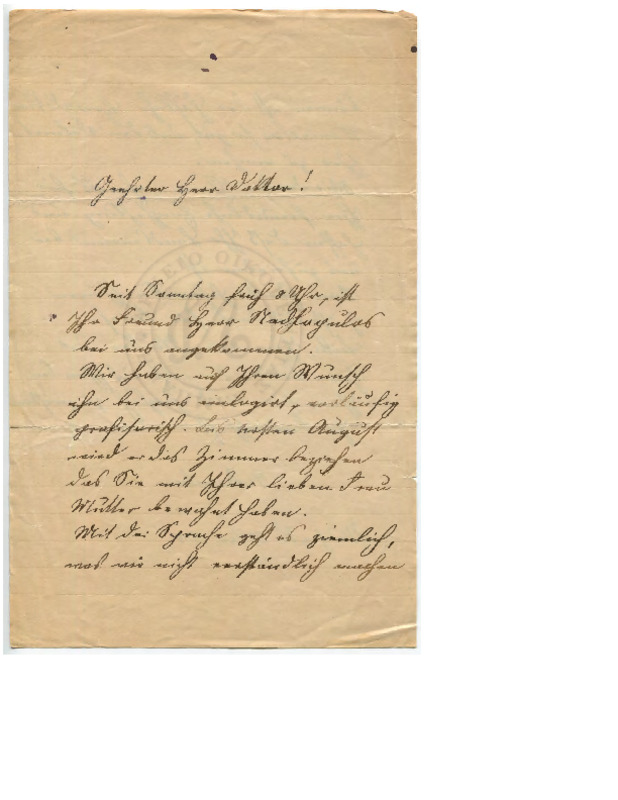 Geehrter Herr Doktor!
Seit Sonntag früh 8 Uhr, ist
Ihr Freund Herr
bei uns angekommen.
Wir haben auf Ihren Wunsch
ihn bei uns einlogirt, vorläufig
profisorisch. ersten August
wird er das Zimmer beziehen
das Sie mit Ihrer lieben Frau
Mutter bewohnt haben.
Mit der Sprache geht es ziemlich,
was wir nicht verständlich machen